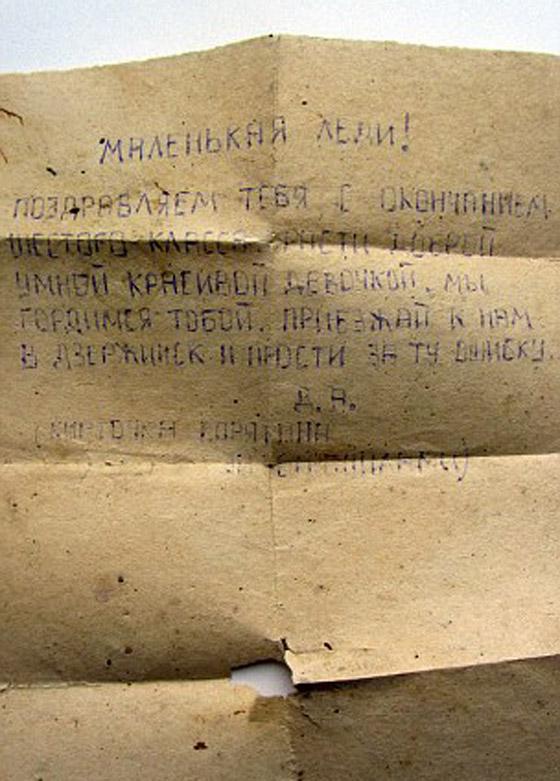 МАЛЕНЬКАЯ ЛЕДИ!
ПОЗДРАВЛЯЕМ ТЕБЯ С ОКОНЧАНИЕМ
ШЕСТОГО КЛАССА. РАСТИ ДОБРОЙ
УМНОЙ КРАСИВОЙ ДЕВОЧКОЙ. МЫ
ГОРДИМСЯ ТОБОЙ. ПРИЕЗЖАЙ К НАМ
В ДЗЕРЖИНСК И ПРОСТИ ЗА ТУ ОШИБКУ.
Д. А.